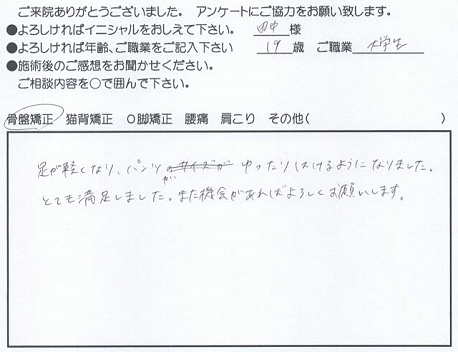 ご来院ありがとうございました。 アンケートにご協力をお願い致します。
●よろしければイニシャルをおしえて下さい。 田中 様
●よろしければ年齢、ご職業をご記入下さい 19 歳 ご職業 大学生
●施術後のご感想をお聞かせください。
ご相談内容を○で囲んで下さい。
骨盤矯正 猫背矯正 O脚矯正 腰痛 肩こり その他( )
足が軽くなり、パンツのサイズが がゆったりはけるようになりました。
とても満足しました。また機会があればよろしくお願いします。